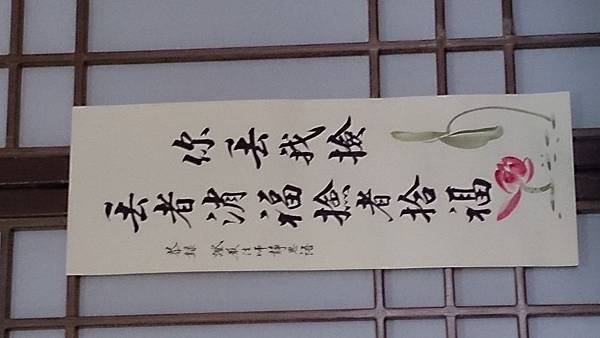 你丟我撿
丟者消福撿者拾福
恭錄 證嚴法師靜思語